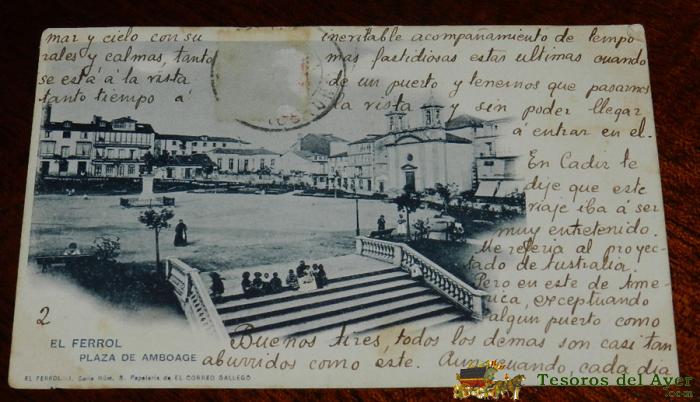 mar y cielo con su inevitable acompañamiento de tempo-
rales y calmas, tanto mas fastidiosas estas ultimas cuando
se está á la vista de un puerto y tenemos que pasarnos
tanto tiempo á la vista y sin poder llegar
á entrar en el.
En Cadiz te
dije que este
viaje iba á ser
muy entretenido.
Me referia al proyec-
tado de Australia.
Pero en este de Ame-
rica, exceptuando
algun puerto como
Buenos Aires, todos los demas son casi tan
aburridos como este. Aun cuando, cada dia
2
EL FERROL
PLAZA DE AMBOAGE
EL FERROL. Serie Núm. 8. Papelería de EL CORREO GALLEGO
Tesoros del Ayer
.com